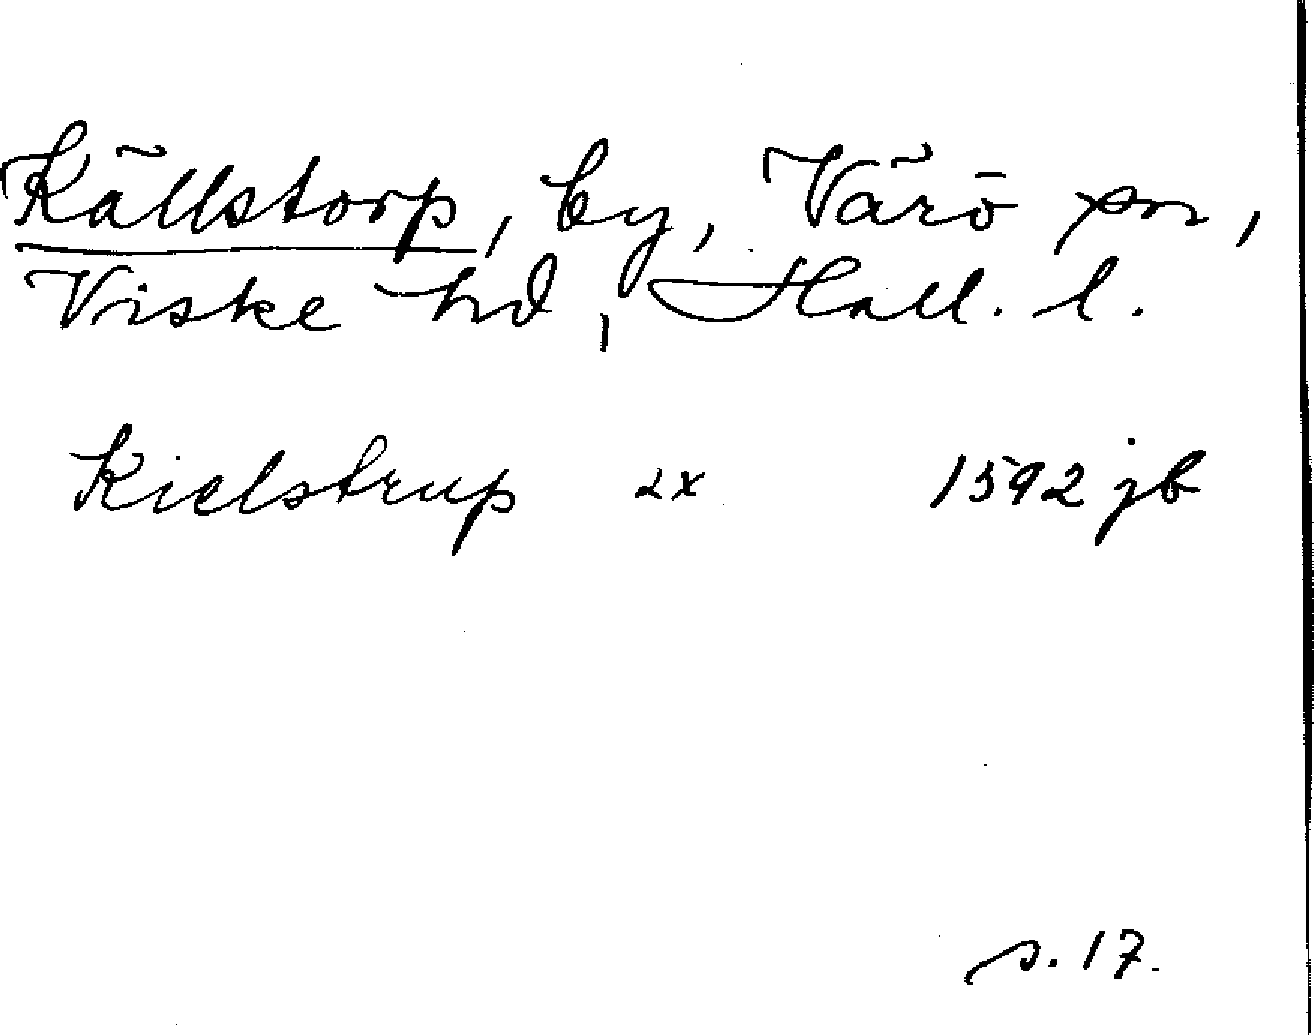 Källstorp, by, Värö sn,
Viske hd, Hall. l.
Kielstrup 2x 1592 jb
s. 17.